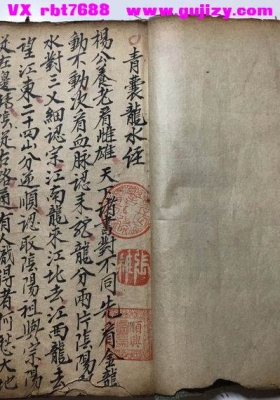 VX rbt7688 www.gujizy.com
青囊龍水任
楊公養老看雌雄 天下諸書對不同 先看金龍
動不動次看血脉認來龍龍分兩片陰陽
水對三叉細認宗江南龍來江北去江西龍去
望江東二十四山分逆順認取陰陽祖與宗陽
從左邊轉陰從右路通有人識得者何愁大地
順興